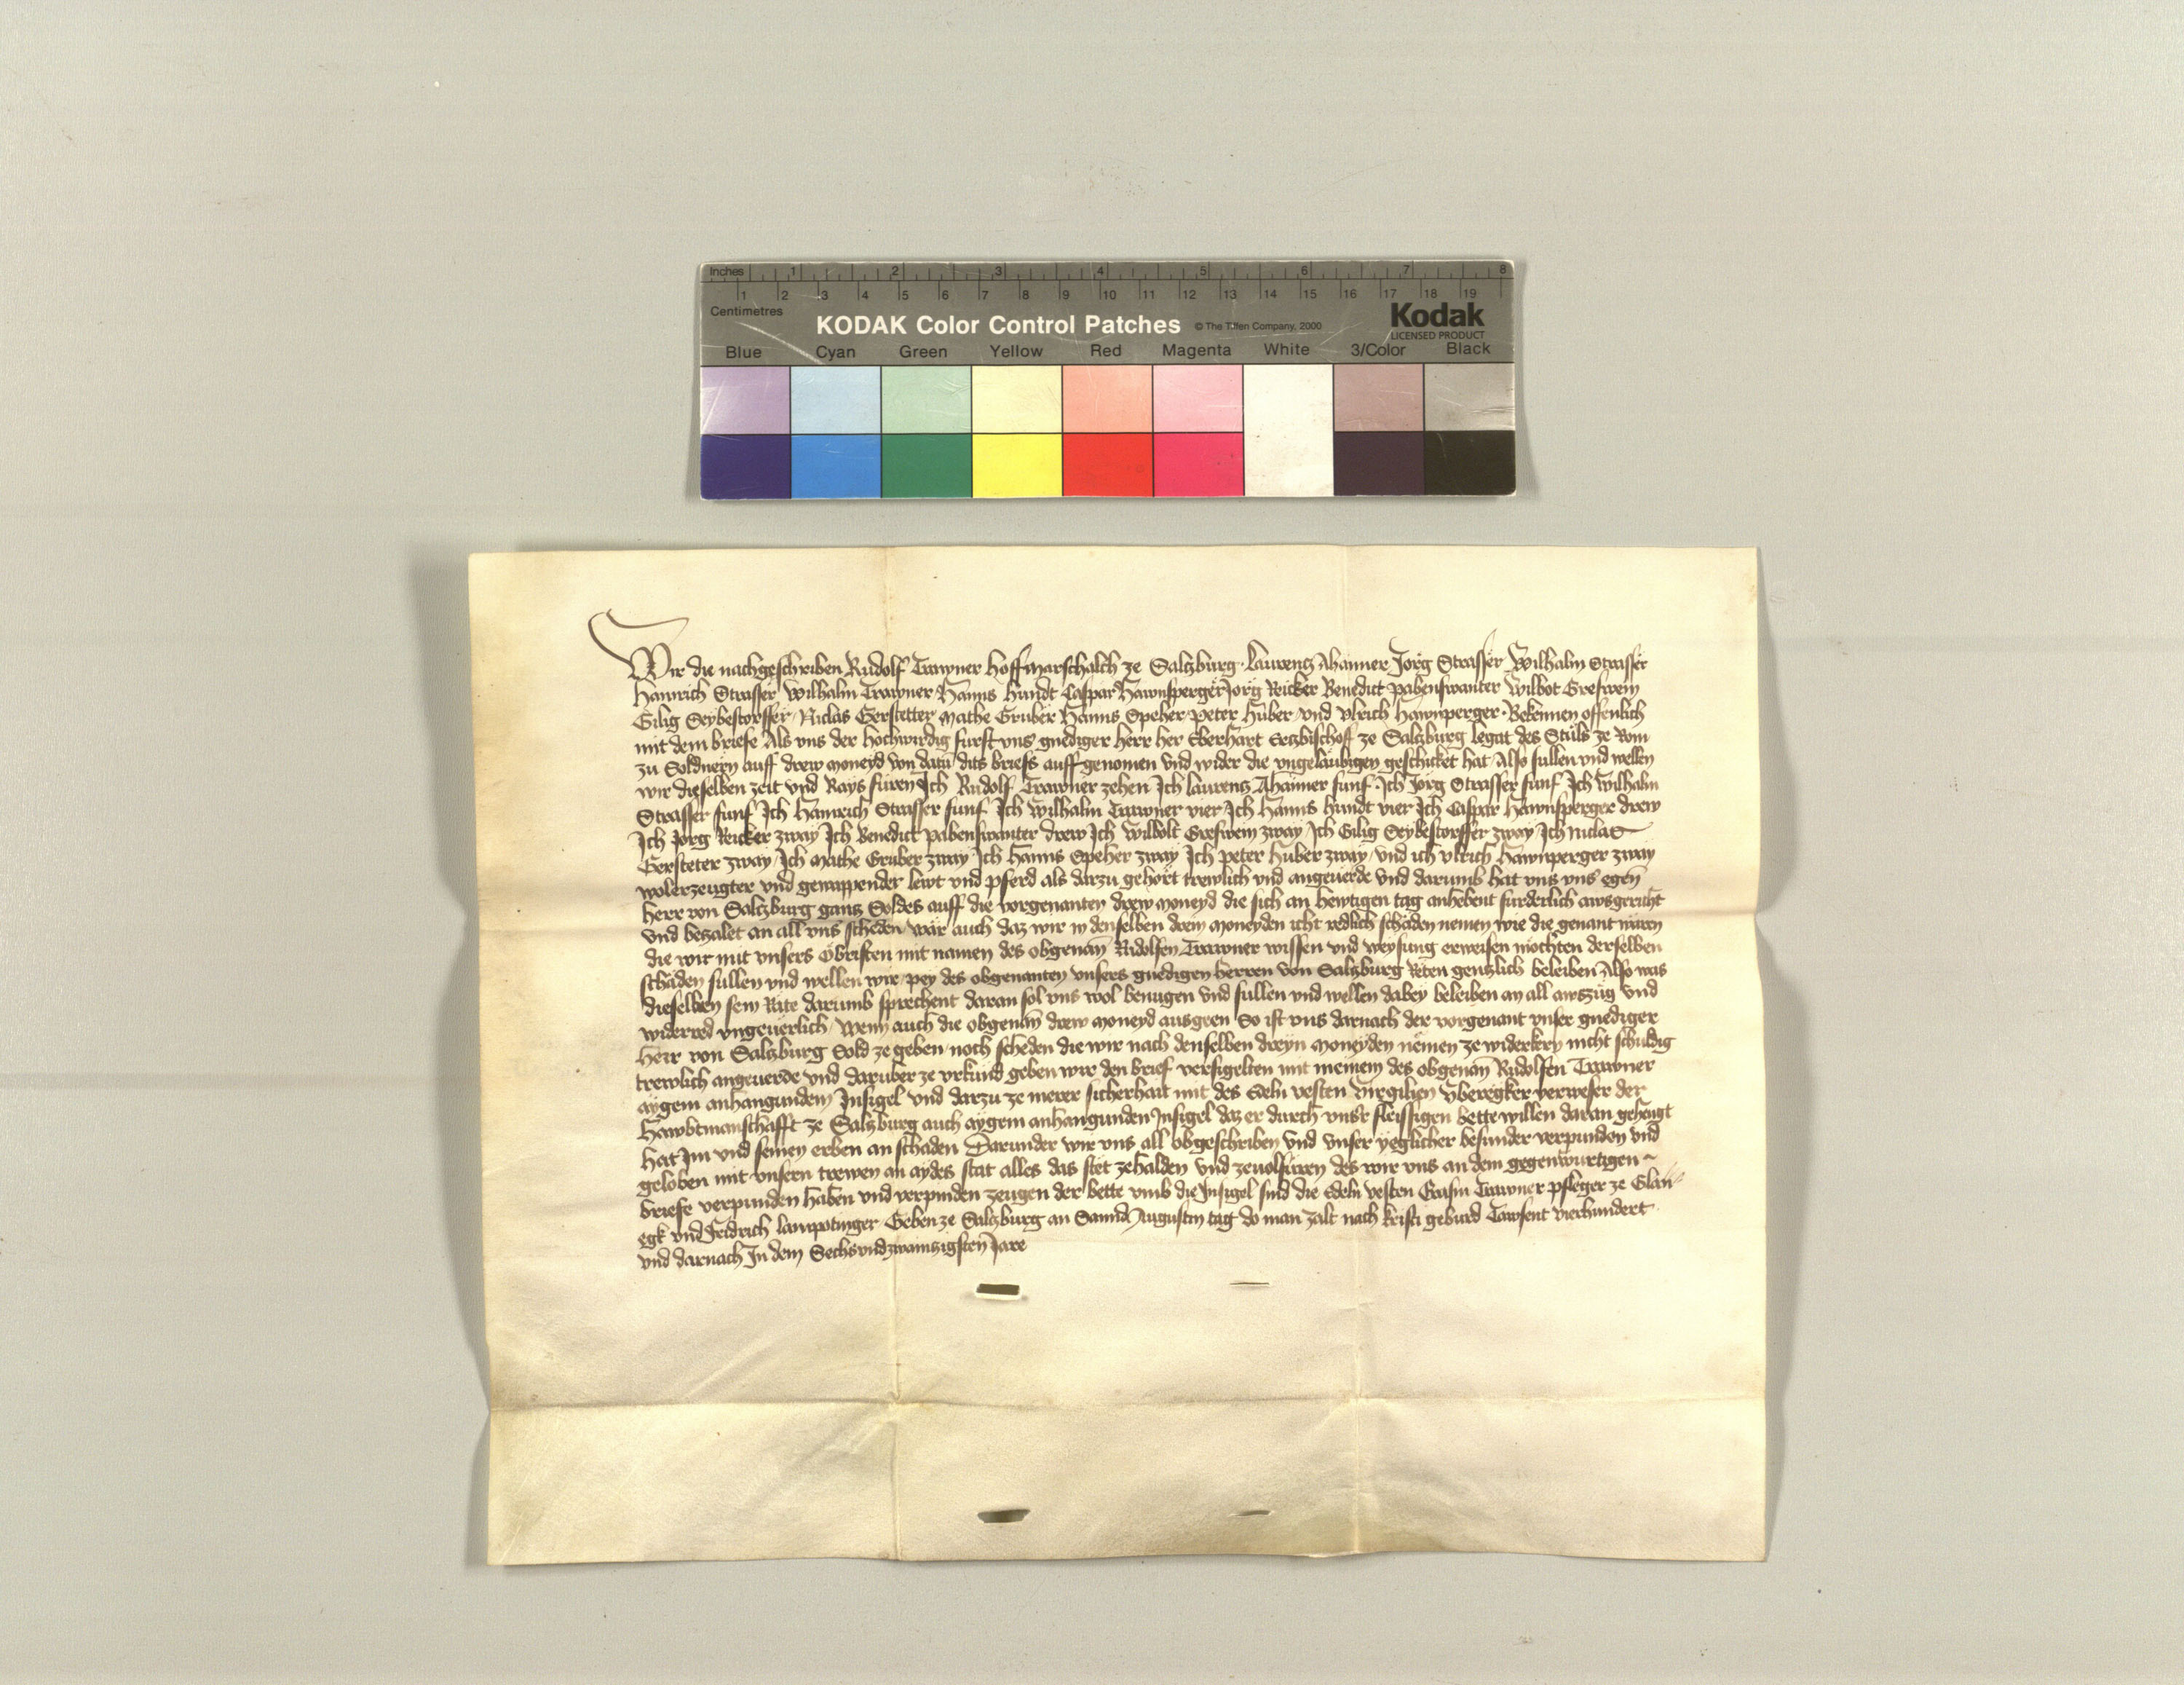 Inches 1 2 3 4 5 6 7 8
1 2 3 4 5 6 7 8 9 10 11 12 13 14 15 16 17 18 19
Centimetres
KODAK Color Control Patches © The Tiffen Company, 2000 Kodak
LICENSED PRODUCT
Blue Cyan Green Yellow Red Magenta White 3/Color Black
Wir die nachgeschriben Rudolf Trawner Hoffmarschalch ze Salczburg Laurencz Ahaimer Jorg Strasser Wilhalm Strasser
Hainrich Strasser Wilhalm Trawner Hanns Hundt Caspar Hawnsperger Jorg Reicker Benedict Pabenswanter Wilbot Greswein
Gilig Seybestorffer Niclas Gerstetter Mathe Gruber Hanns Speher Peter Huber vnd Vlrich Hawnperger Bekennen offenlich
mit dem briefe Als vns der Hochwirdig furst vns gnediger herr her Eberhart Erczbischoff ze Salczburg legat des Stuls ze Rom
zu Soldnern auff drew moneyd von datu dits briefs auffgenomen vnd wider die vngelaubigen geschicket hat Also sullen vnd wellen
wir dieselben zeit vnd Rays füren Ich Rudolf Trawner zehen Ich laurencz Ahaimer funf Ich Jorg Strasser funf Ich Wilhalm
Strasser funf Ich Hainrich Strasser funf Ich Wilhalm Trawner vier Ich Hanns hundt vier Ich Caspar Hawnsperger drew
Ich Jorg Reicker zway Ich Benedict pabenswanter drew Ich Wilbolt Greswein zway Ich Gilig Seybestorffer zway Ich niclas
Gersteter zway Ich Mathe Gruber zway Ich Hanns Speher zway Ich peter huber zway vnd ich vlrich Hawnperger zway
wolerzeugter vnd gewappender lewt vnd pferd als darzu gehört trewlich vnd angeuerde vnd darumb hat vns vns egen
herr von Salczburg gancz Soldes auff die vorgenanten drew moneyd die sich an hewtigen tag anhebent furderlich awsgericht
vnd beczalet an all vns scheden wär auch daz wir in denselben drein moneyden icht redlich schäden nemen wie die genant wären
die wir mit vnsers Obristen mit namen des obgenan Rudolfen Trawner wissen vnd weysung erweisen möchten derselben
schäden sullen vnd wellen wir pey des obgenanten vnsers gnedigen herren von Salczburg Reten genczlich beleiben Also was
dieselben sein Räte darumb sprechent daran sol vns wol benugen vnd sullen vnd wellen dabey beleiben an all awszüg vnd
widerred vngeuerlich Wenn auch die obgenan drew moneyd ausgeen So ist vns darnach der vorgenant vnser gnediger
herr von Salczburg Sold ze geben noch scheden die wir nach denselben dreyn moneyden nemen ze widerkern nicht schuldig
trewlich angeuerde vnd daruber ze vrkund geben wir den brief versigelten mit meinem des obgenan Rudolfen Trawner
aygem anhangundem Insigel vnd darzu ze merer sicherhait mit des Edeln vesten Virgilien Vberegker verweser der
Hawbtmanschafft ze Salczburg auch aygem anhangunden Insigel daz er durch vnsr fleissigen bette willen daran gehengt
hat Im vnd seinen erben an schaden Darunder wir vns all obgeschriben vnd vnser yeglicher besunder verpunden vnd
geloben mit vnsern trewen an aydes stat alles das stet zehalden vnd zeuolfüren des wir vns an dem gegenwurtigen
briefe verpunden haben vnd verpinden zeugen der bette vmb die Insigel sind die Edeln vesten Erasm Trawner pfleger ze Glan
egk vnd fridrich lampotinger Geben ze Salczburg an Sannd Augustin tag do man zalt nach kristi geburd Tawsent vierhundert
vnd darnach In dem Sechsvndzwainczigisten Jare